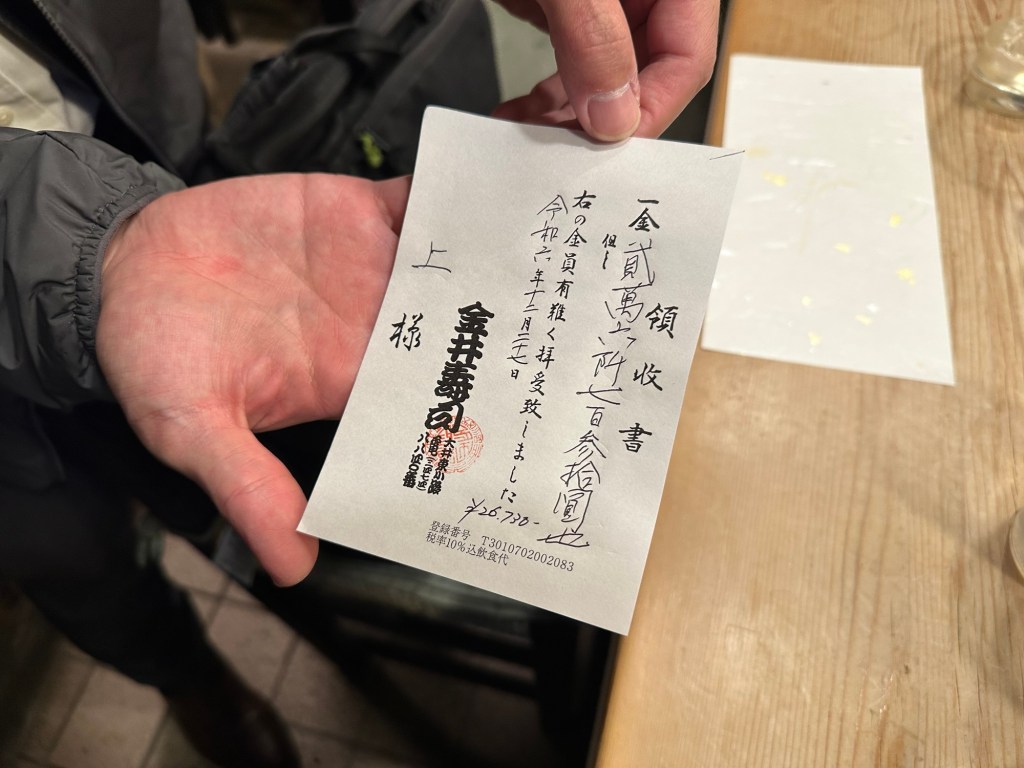 領収書
一金貳萬六阡七百参拾圓也
但し
右の金員有難く拝受致しました
令和六年十二月二十七日
金井寿司
大井東小路
上様
¥26.730-
登録番号 T3010702002083
税率10%込飲食代